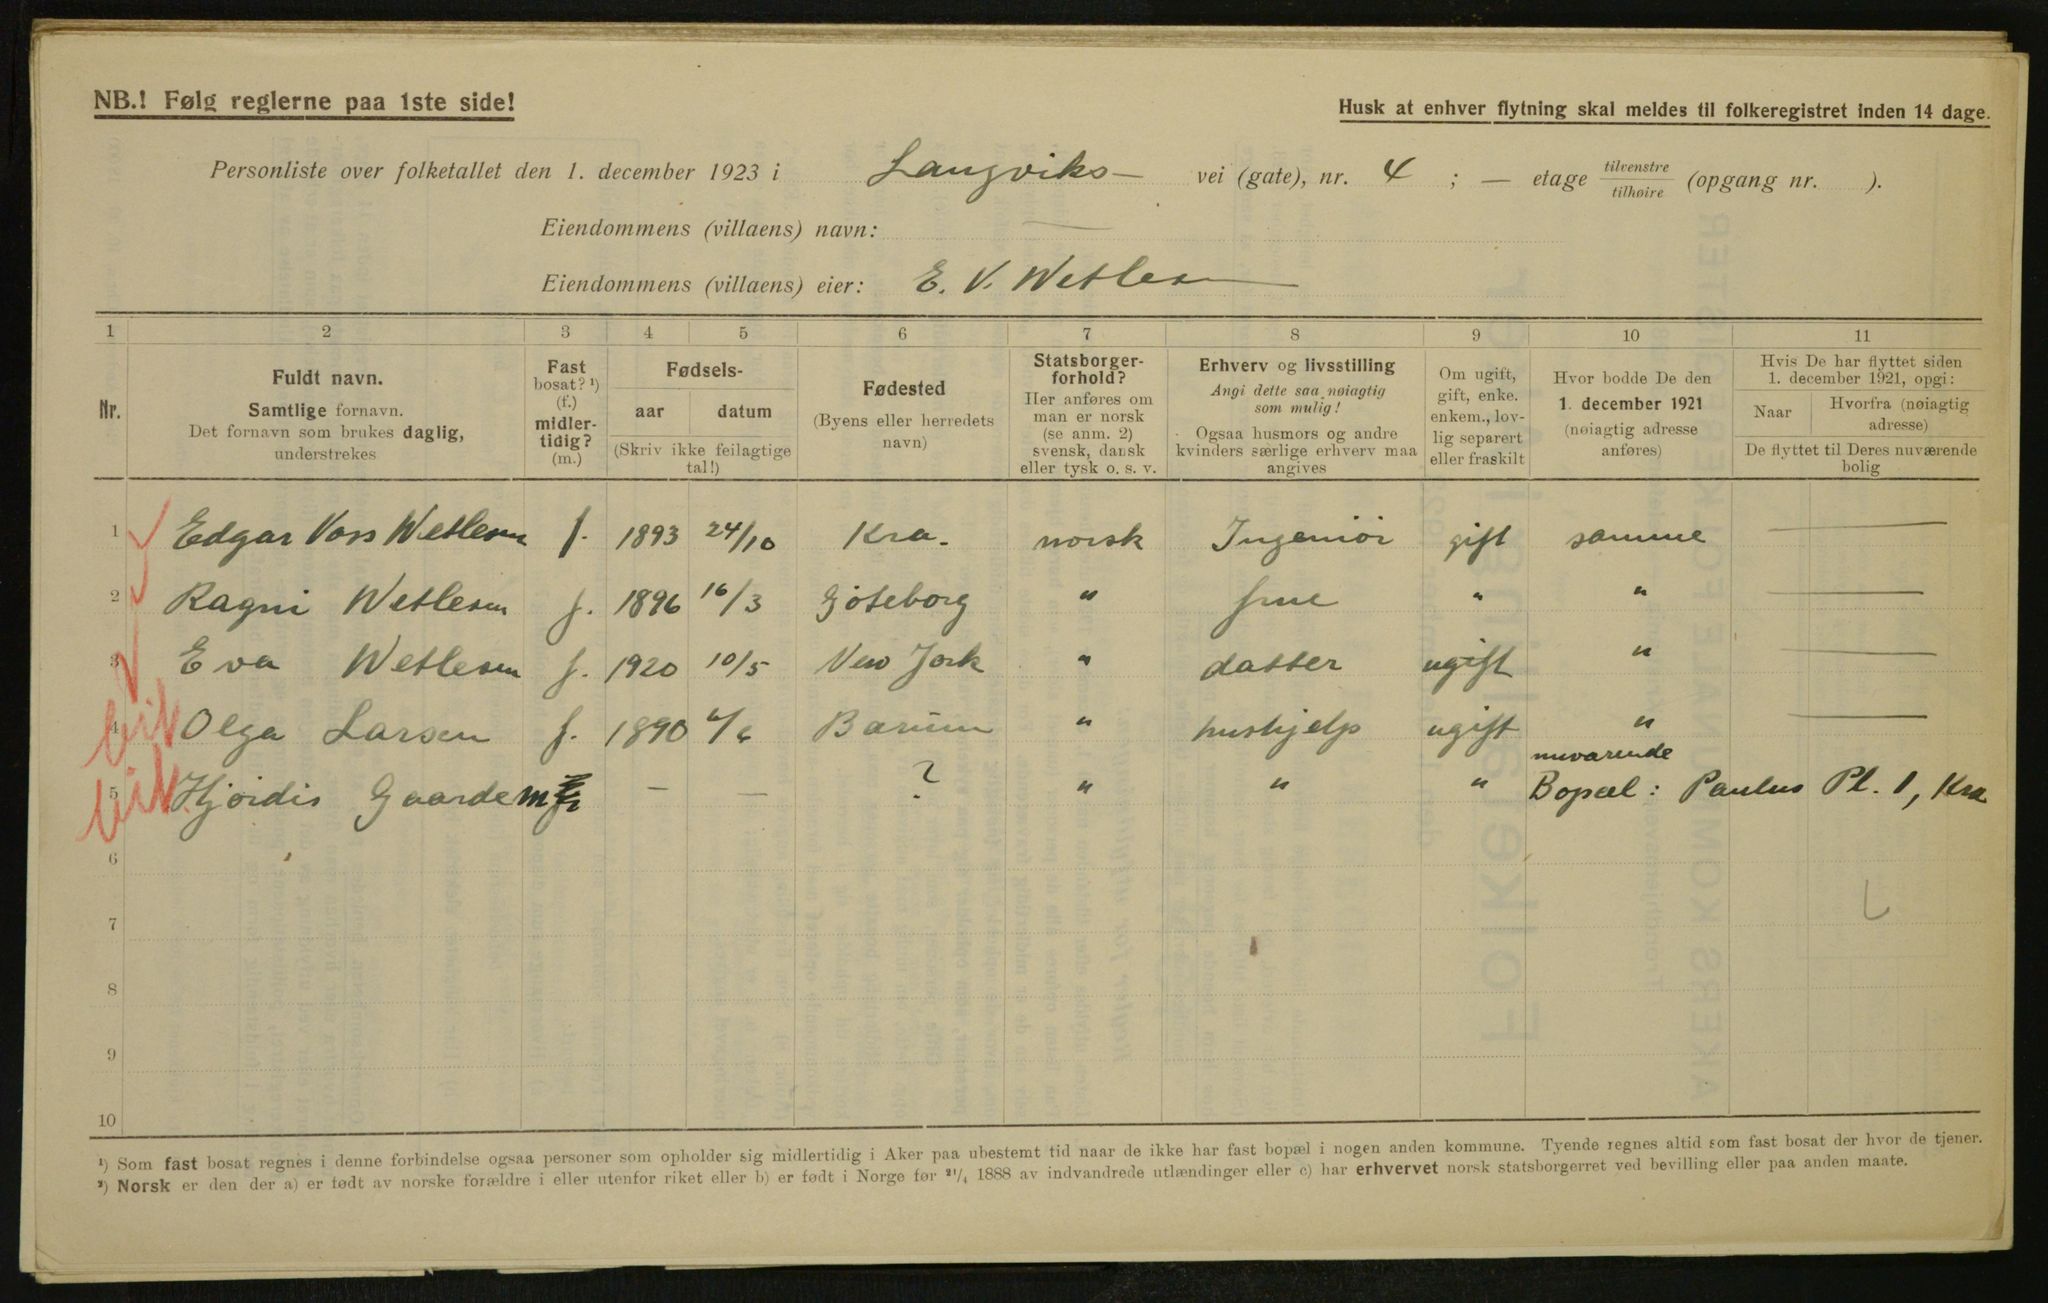 NB.! Følg reglerne paa 1ste side!
Husk at enhver flytning skal meldes til folkeregistret inden 14 dage.
Personliste over folketallet den 1. december 1923 i Langviks- vei (gate), nr. 4 ; — etage tilvenstre tilhøire (opgang nr. ).
Eiendommens (villaens) navn: —
Eiendommens (villaens) eier: E. V. Wetlesen
1 2 3 4 5 6 7 8 9 10 11
Nr.
Fuldt navn.
Samtlige fornavn.
Det fornavn som brukes daglig,
understrekes
Fast
bosat? ¹)
(f.)
midler-
tidig?
(m.)
Fødsels-
aar datum
(Skriv ikke feilagtige
tal!)
Fødested
(Byens eller herredets
navn)
Statsborger-
forhold?
Her anføres om
man er norsk
(se anm. 2)
svensk, dansk
eller tysk o. s. v.
Erhverv og livsstilling
Angi dette saa nøiagtig
som mulig!
Ogsaa husmors og andre
kvinders særlige erhverv maa
angives
Om ugift,
gift, enke.
enkem., lov-
lig separert
eller fraskilt
Hvor bodde De den
1. december 1921
(nøiagtig adresse
anføres)
Hvis De har flyttet siden
1. december 1921, opgi:
Naar Hvorfra (nøiagtig
adresse)
De flyttet til Deres nuværende
bolig
1 Edgar Voss Wetlesen f. 1893 24/10 Kra. norsk Ingeniör gift samme —
2 Ragni Wetlesen f. 1896 16/3 Göteborg " frue " " —
3 Eva Wetlesen f. 1920 10/5 New York " datter ugift " —
4 Olga Larsen f. 1890 /6 Barum " hushjelp ugift " —
nuvarende
5 Hjördis Gaarde m — — ? " " " Bopæl: Paulus Pl. 1, Kra
6
7
8
9
10
¹) Som fast bosat regnes i denne forbindelse ogsaa personer som opholder sig midlertidig i Aker paa ubestemt tid naar de ikke har fast bopæl i nogen anden kommune. Tyende regnes altid som fast bosat der hvor de tjener.
²) Norsk er den der a) er født av norske forældre i eller utenfor riket eller b) er født i Norge før 21/4 1888 av indvandrede utlændinger eller c) har erhvervet norsk statsborgerret ved bevilling eller paa anden maate.